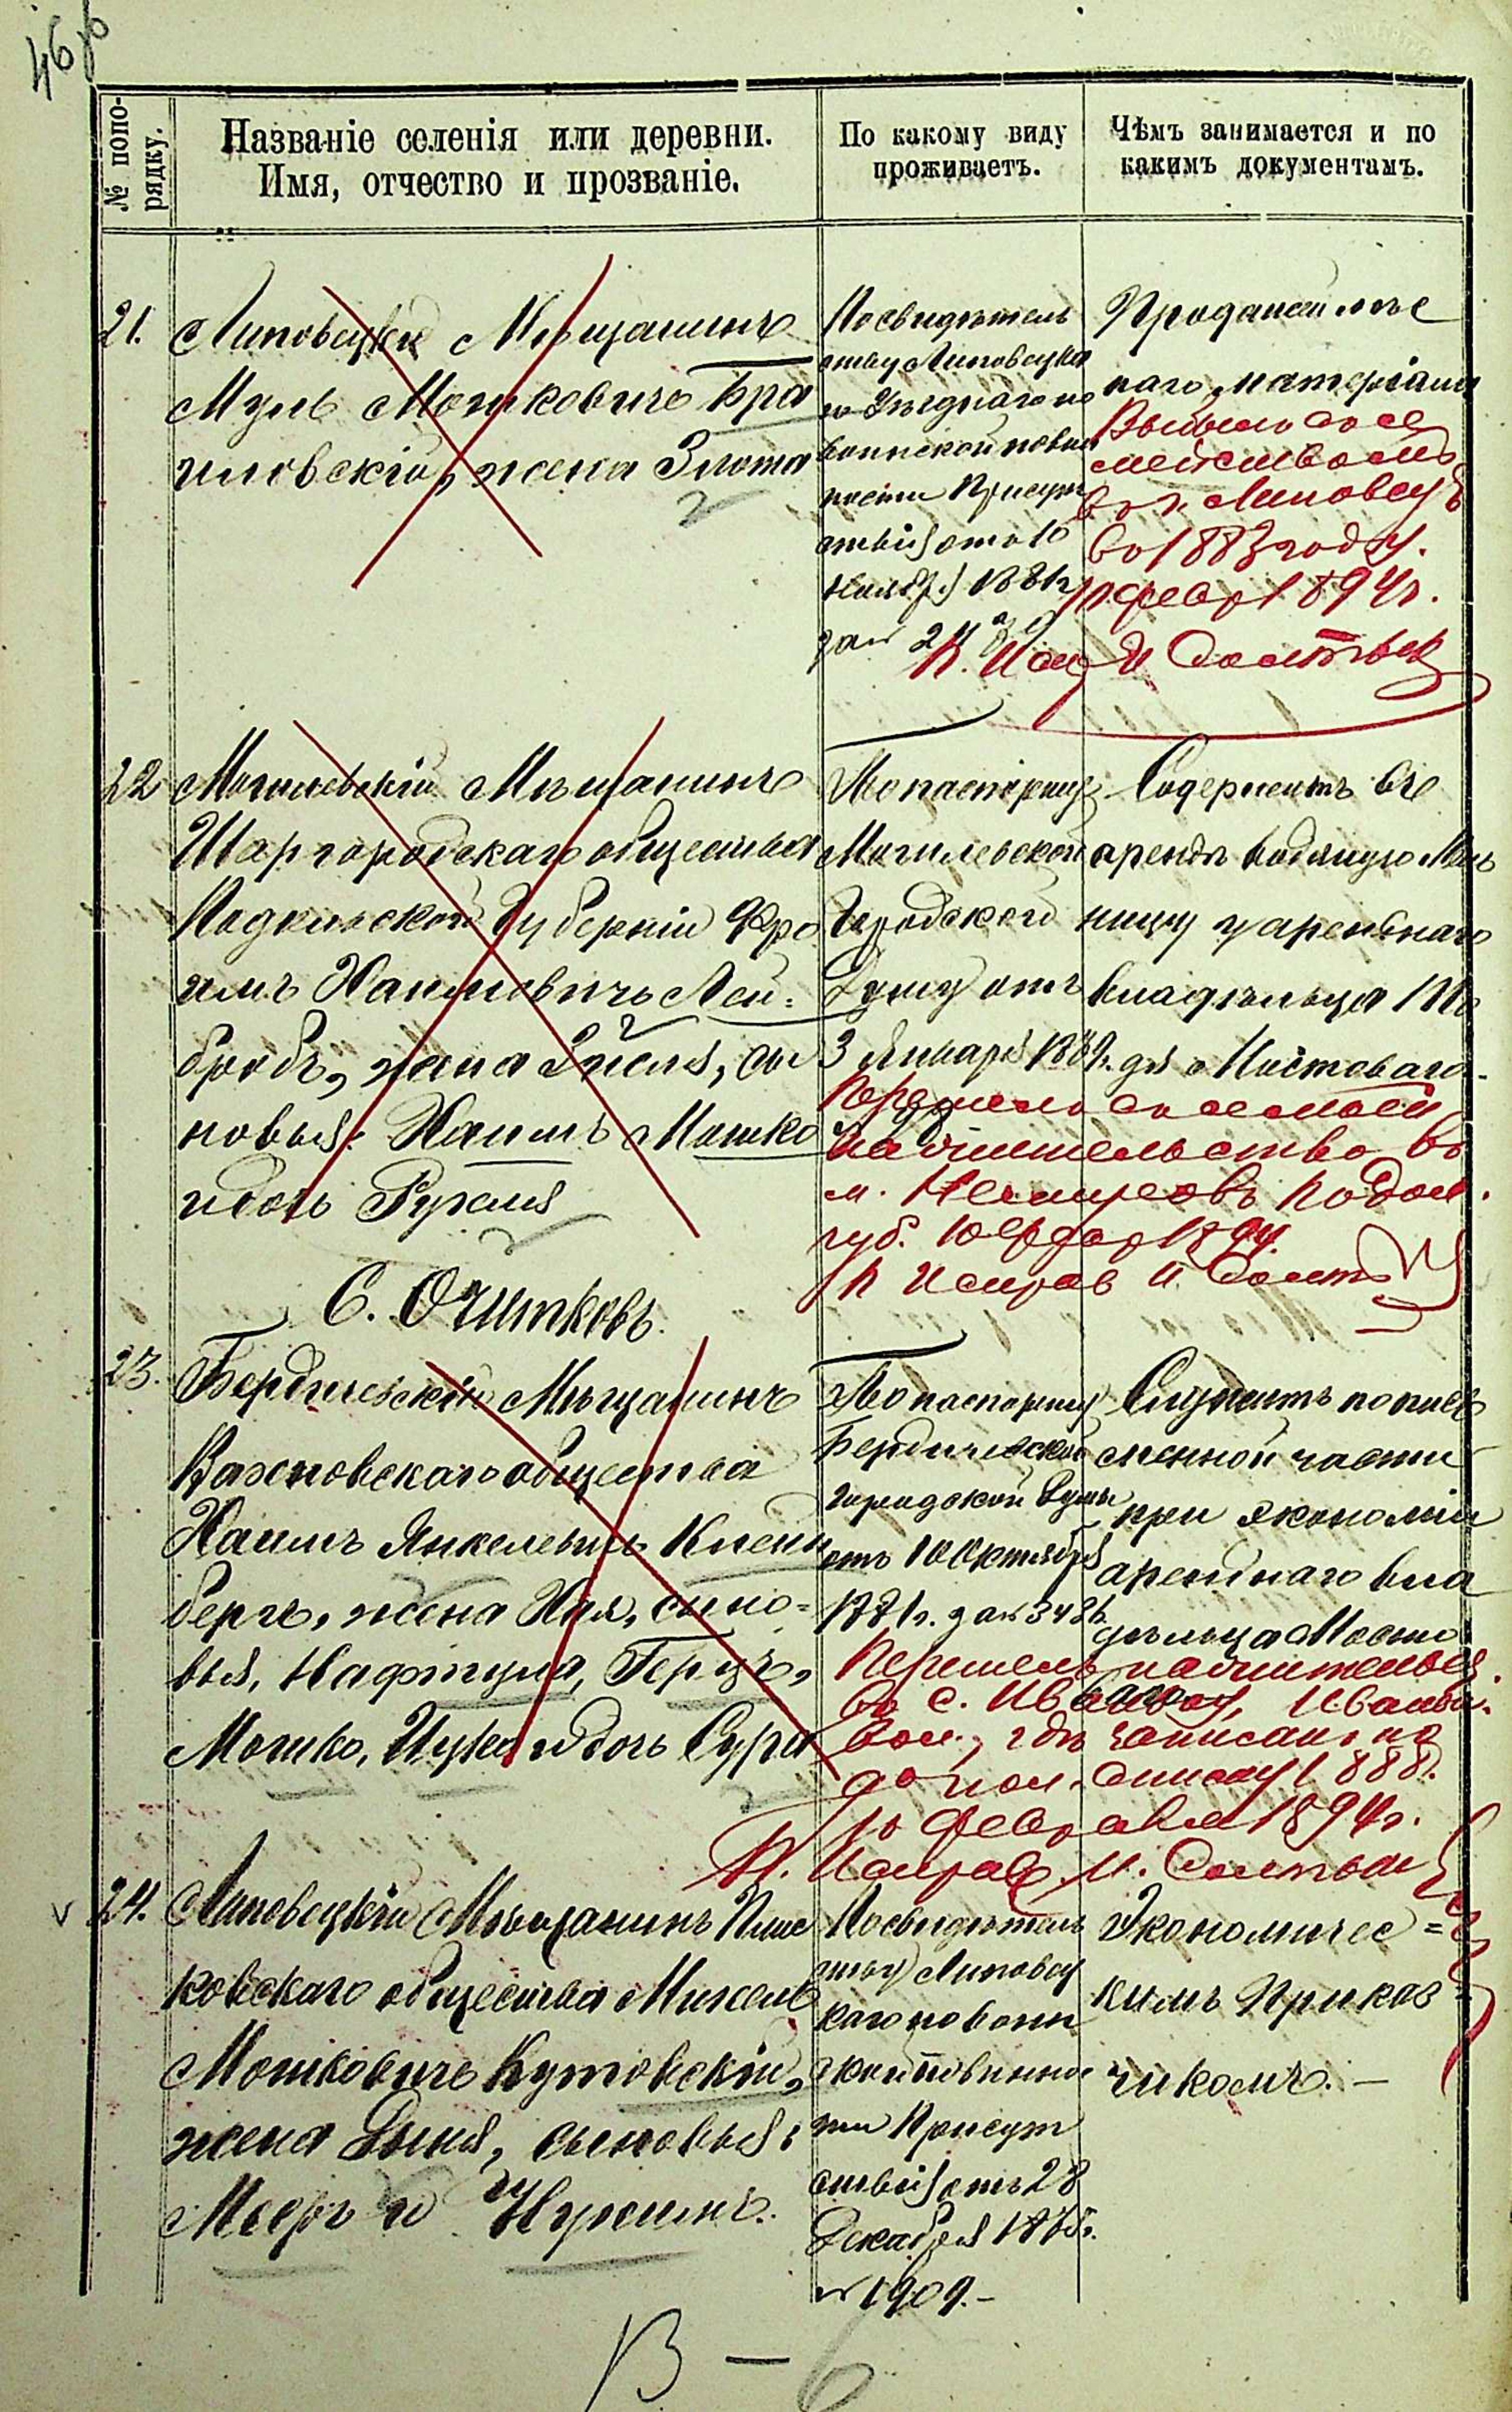 46 об
№ попо-
рядку.
Названіе селенія или деревни.
Имя, отчество и прозваніе.
По какому виду
проживаетъ.
Чѣмъ занимается и по
какимъ документамъ.
21.
Липовецкій Мѣщанинъ
Муль Мошковичъ Бра
иловскій, жена Злота
По свидѣтель
ству Липовецка
го Уѣзднаго по
воинской повин
ности Присут
ствія отъ 10
Ноября 1881 г
за №
Продажей лѣс
наго матеріала
Выбылъ со се
мействомъ
въ г. Липовецъ
въ 1883 году.
10 февр 1894 г.
22
Могилевскій Мѣщанинъ
Шаргородскаго общества
Подольской Губерніи Фро
имъ Хаимовичъ Лей-
бровъ, жена Эйсля, сы
новья: Хаимъ Мошко
и дочь Рухля
По паспорту
Могилевской
Городской
Думы отъ
3 Января 1889.
Содержитъ въ
арендѣ водяную мель
ницу у аренднаго
владѣльца
Мостоваго.
Перешелъ со семьей
на жительство въ
м. Немировъ Подол.
губ. 10 февр 1894.
П Исправ И Солт
С. Очитковъ.
23.
Бердичевскій Мѣщанинъ
Вахновскаго общества
Хаимъ Янкелевичъ Клейн
бергъ, жена Хая, сыно-
вья, Нафтула, Герцъ,
Мошко, Ицко и дочь Сура
По паспорту
Бердичевской
Городской Думы
отъ 10 Октября
1881 г. за № 3486
Служитъ по пись
менной части
при экономіи
аренднаго вла
дѣльца Мостов
Перешелъ на жительство
въ с. Иваньки, Иваньк.
вол., гдѣ записанъ по
допол. списку 1888 г.
10 февраля 1894 г.
П. Исправ. И. Солтык
24.
Липовецкій Мѣщанинъ Плис
ковскаго общества Михель
Мошковичъ Кутовскій,
жена Дыня, сыновья:
Мееръ и Нухимъ.
По свидѣтель
ству Липовец
каго по воин
ской повинно
сти Присут
ствія отъ 28
Декабря 1875 г.
№ 1909.-
Экономичес=
кимъ Приказ
чикомъ. -
В - 6